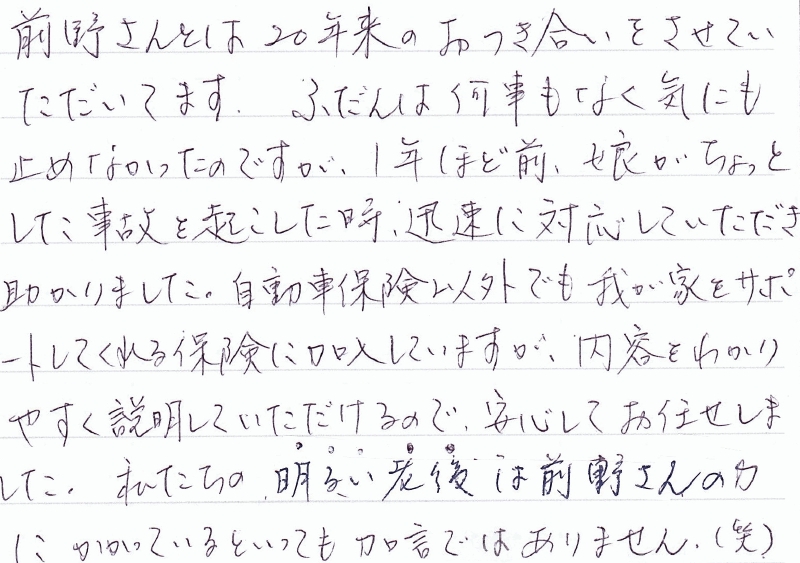 前野さんとは20年来のおつき合いをさせてい
ただいてます. ふだんは何事もなく気にも
止めなかったのですが、1年ほど前、娘がちょっと
した事故を起こした時、迅速に対応していただき
助かりました。自動車保険以外でも我が家をサポ
ートしてくれる保険に加入していますが、内容をわかり
やすく説明していただけるので、安心してお任せしま
した. 私たちの明るい老後は前野さんの力
にかかっているといっても加言ではありません.(笑)